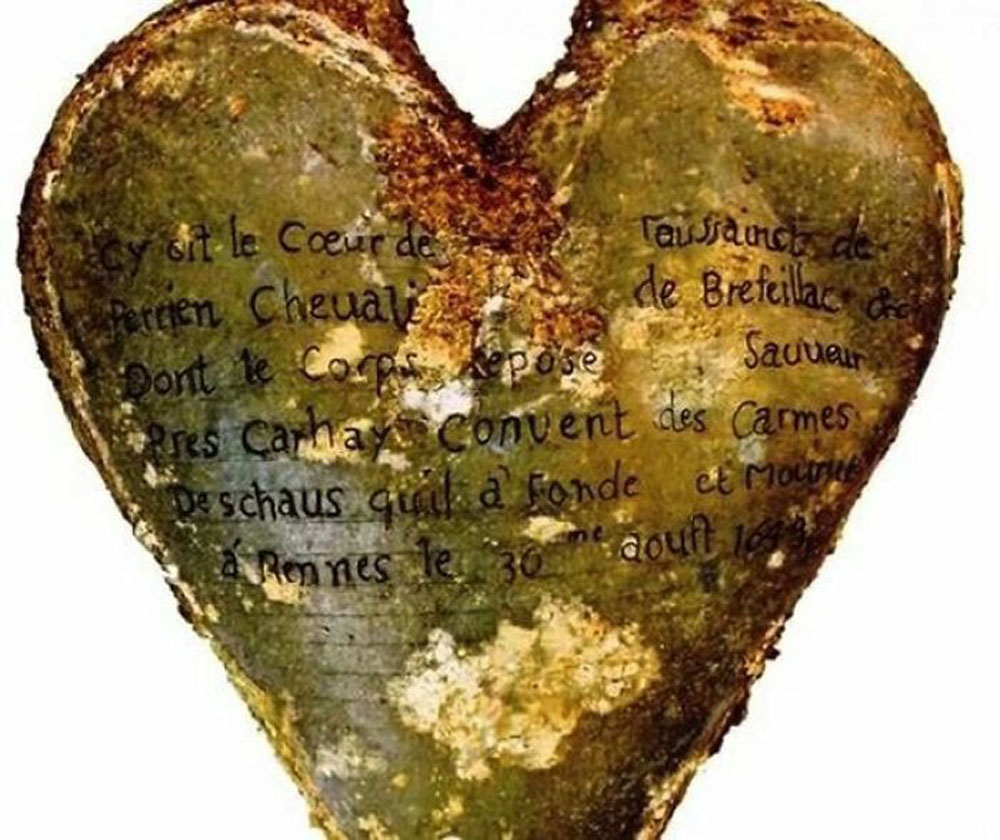 Cy git le Cœur de Toussainct de
Perrien Cheuali de Brefeillac &c
Dont le Corps Repose Sauueur
Pres Carhay Convent des Carmes
Deschaus quil à Fondé et Mourut
à Rennes le 30me aouſt